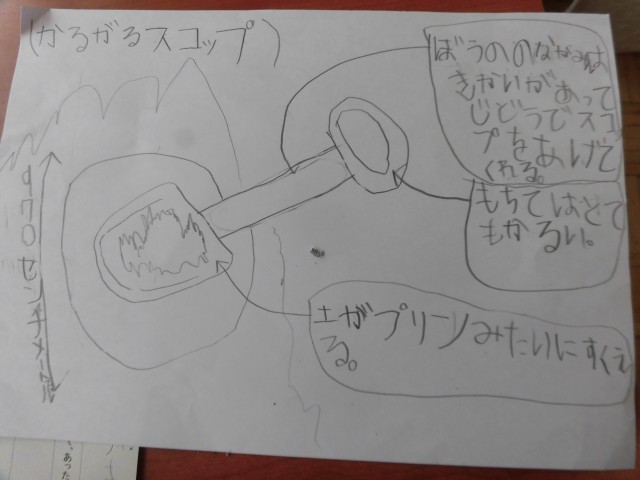 (かるがるスコップ)
ぼうののなかみは
きかいがあって
じどうでスコッ
プをあげて
くれる。
もちてはとて
もかるい。
土がプリンみたいにすくえ
る。
センチメートル
あった